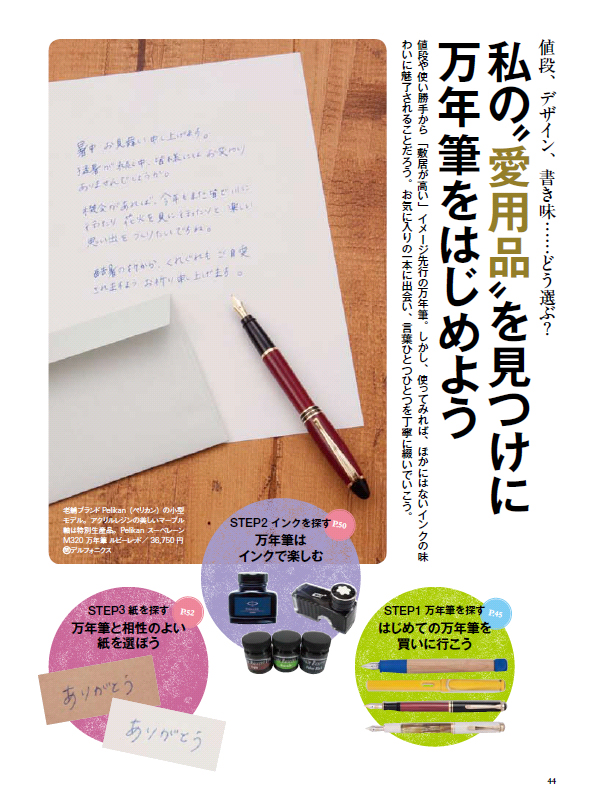 値段、デザイン、書き味……どう選ぶ?
私の〝愛用品〟を見つけに
万年筆をはじめよう
値段や使い勝手から「敷居が高い」イメージ先行の万年筆。しかし、使ってみれば、ほかにはないインクの味
わいに魅了されることだろう。お気に入りの一本に出会い、言葉ひとつひとつを丁寧に綴いでいこう。
暑中お見舞い申し上げます。
猛暑が続く中、
ありませんでしょうか。
機会があれば、今年もまた
行ったり 花火を見に行ったりと 楽しい
思い出をつくりたいですね。
くれぐれも ご自愛
されますよう お祈り申し上げます。
老舗ブランドPelikan(ペリカン)の小型
モデル。アクリルレジンの美しいマーブル
軸は特別生産品。Pelikan スーベレーン
M320 万年筆 ルビーレッド/36,750円
問デルフォニックス
STEP1 万年筆を探す
P.45
はじめての万年筆を
買いに行こう
STEP2 インクを探す
P.50
万年筆は
インクで楽しむ
STEP3 紙を探す
P.52
万年筆と相性のよい
紙を選ぼう
ありがとう
ありがとう
44